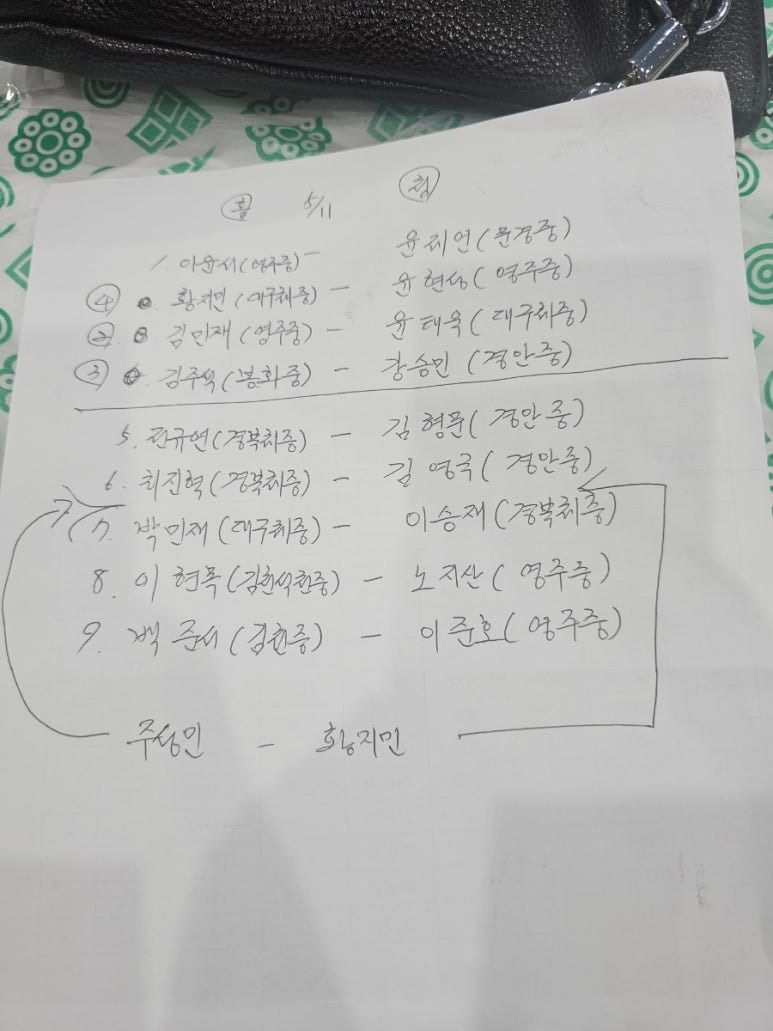 홍 5/11 청
1. 이윤서(영주중) - 윤제언(문경중)
④ 황지민(대구체중) - 윤현성(영주중)
② 김민재(영주중) - 윤태욱(대구체중)
③ 김주석(봉화중) - 강승민(경안중)
5. 권규연(경북체중) - 김형문(경안중)
6. 최진혁(경북체중) - 김영국(경안중)
7. 박민재(대구체중) - 이승재(경북체중)
8. 이현목(김천석천중) - 노지산(영주중)
9. 백준서(김천중) - 이준호(영주중)
주성민 - 황지민